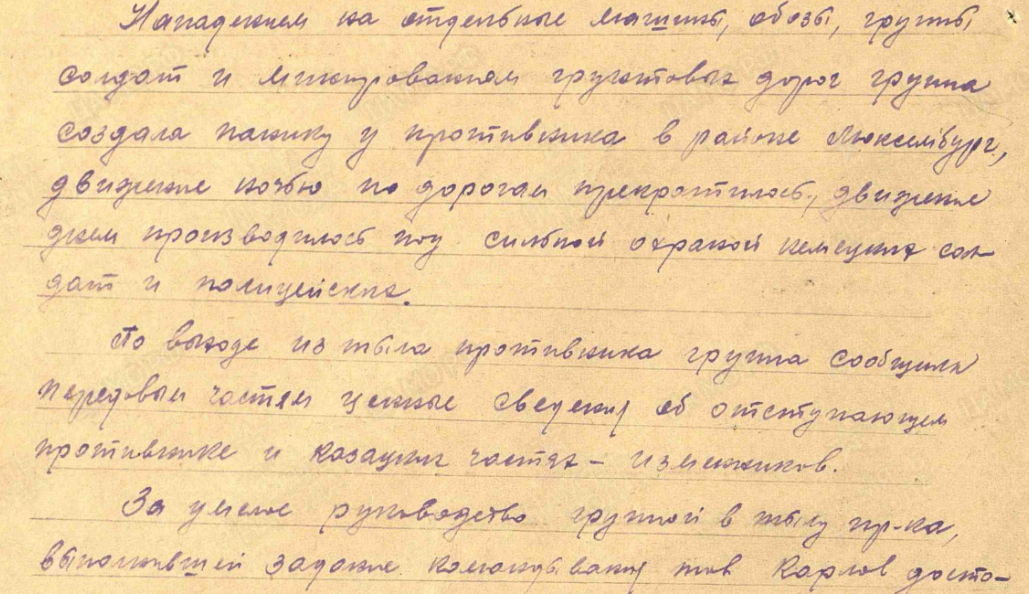 Нападением на отдельные машины, обозы, группы
солдат и минированием грунтовых дорог группа
создала панику у противника в районе Люксембург,
движение ночью по дорогам прекратилось, движение
днем производилось под сильной охраной немецких сол-
дат и полицейских.
По выходе из тыла противника группа сообщила
передовым частям ценные сведения об отступающем
противнике и казацких частях – изменников.
За умелое руководство группой в тылу пр-ка,
выполнившей задание командования тов Карлов досто-